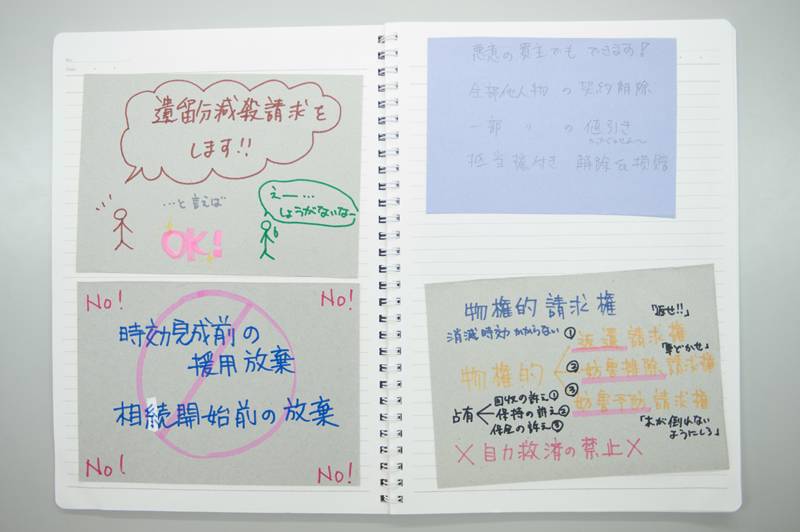 遺留分減殺請求を
します!!
…と言えば
OK!
えー…
しょうがないなー
No!
No!
時効完成前の
援用放棄
相続開始前の放棄
No!
No!
悪意の買主でもできます!
全部他人物の契約解除
一部 〃 の値引き
担当権付き 解除&損賠
物権的請求権
消滅時効かからない
「返せ!!」
物権的
①返還請求権
「車どかせ」
②妨害排除請求権
③妨害予防請求権
「木が倒れない
ようにしろ」
占有
回収の訴え①
保持の訴え②
保全の訴え③
×自力救済の禁止×